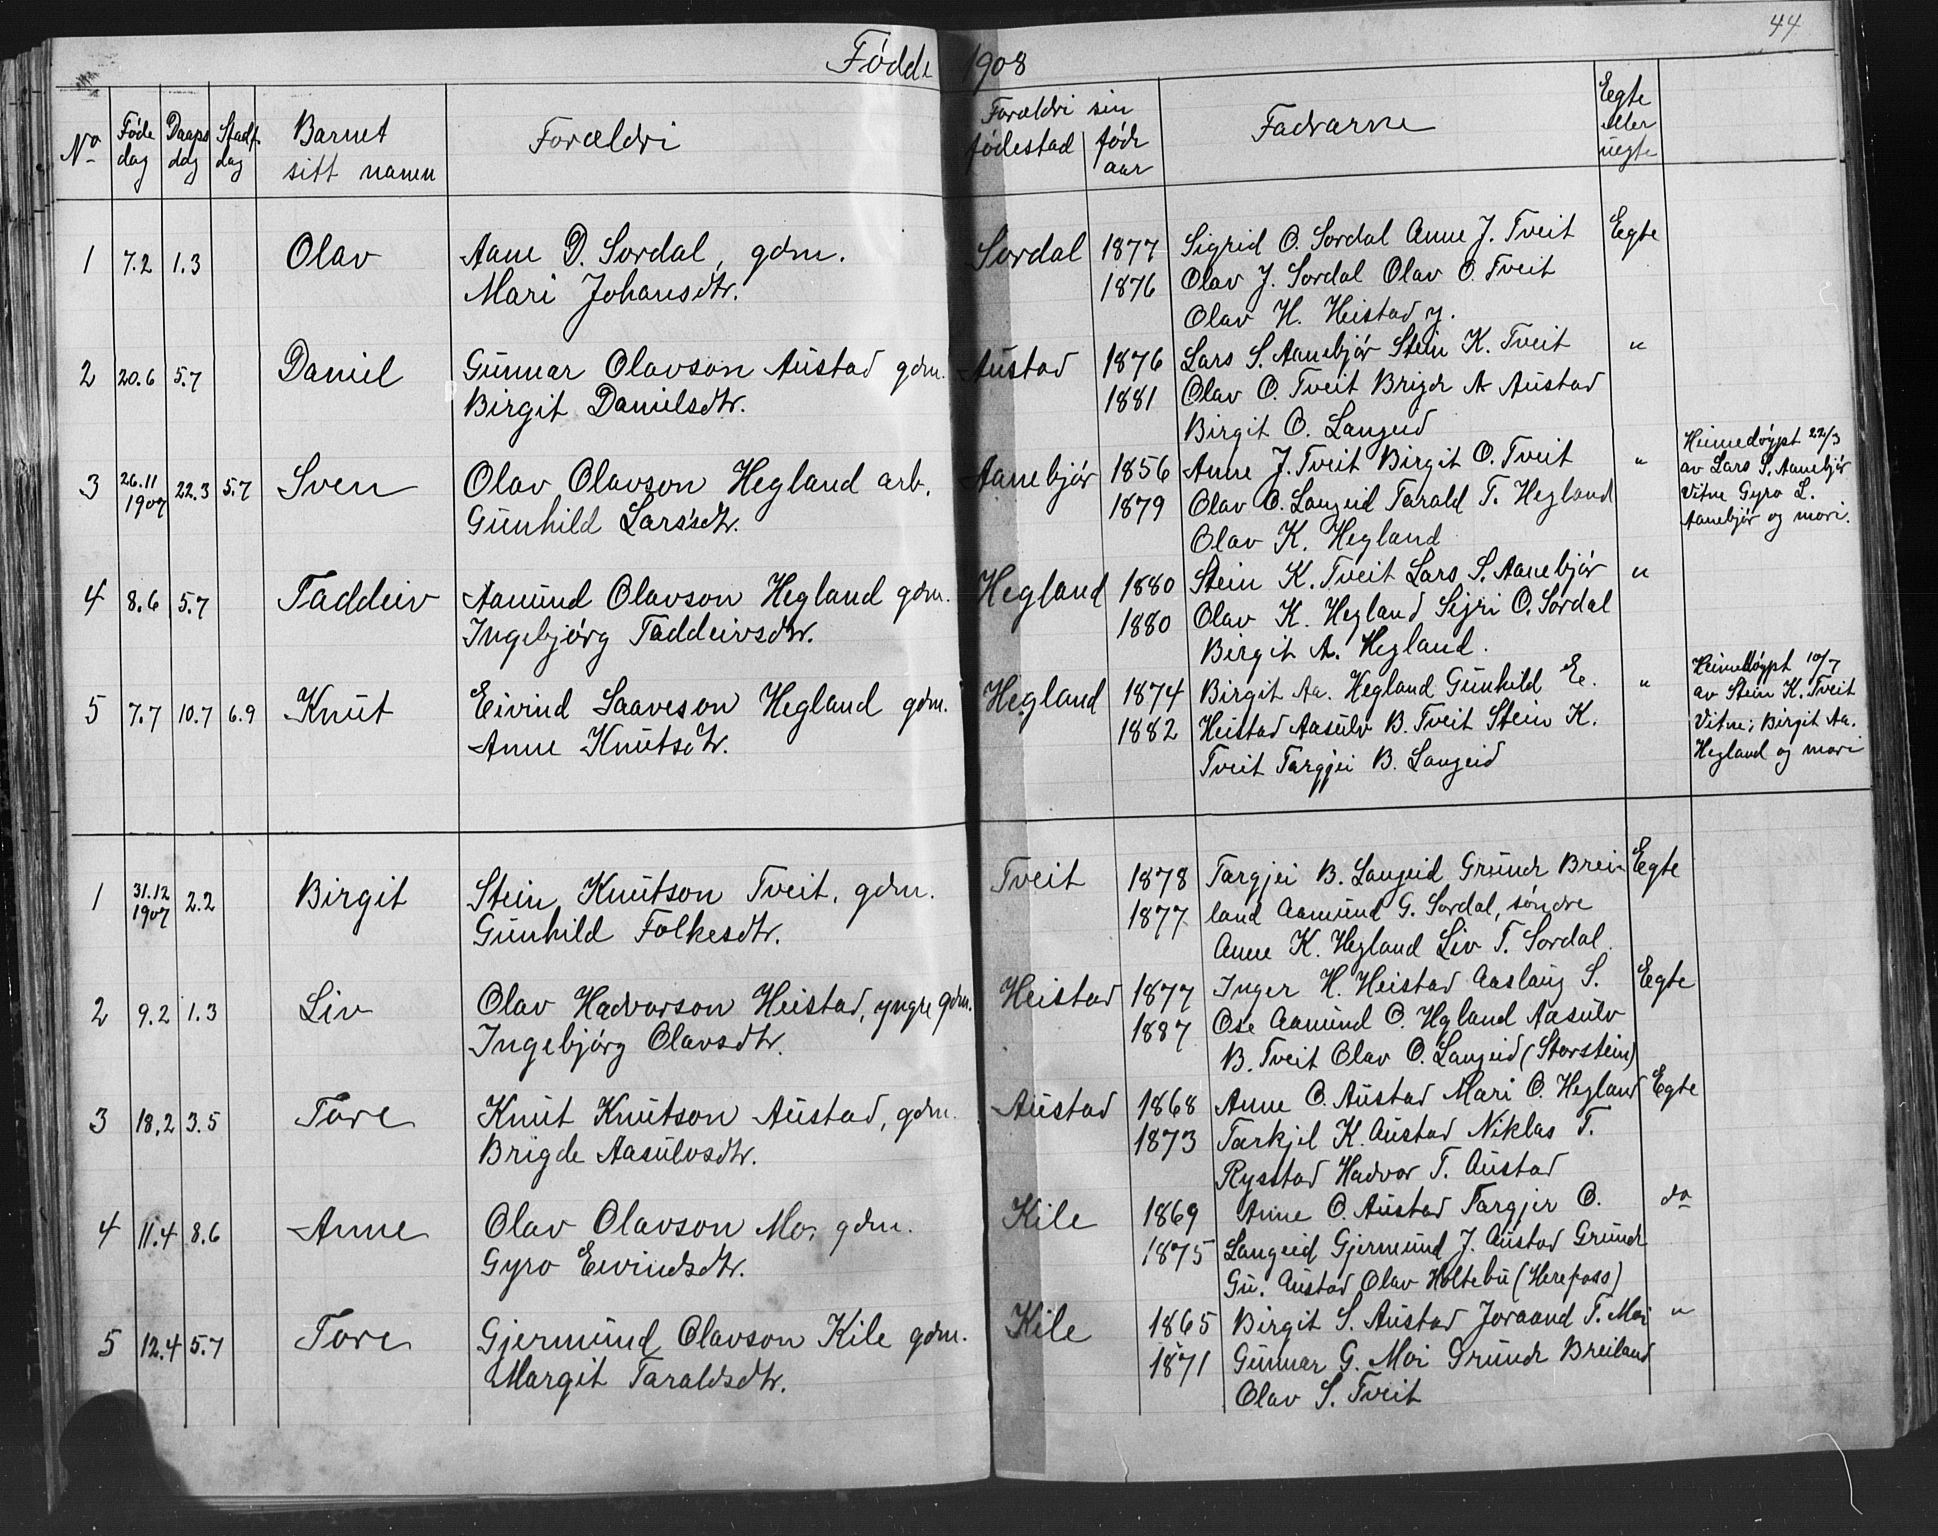 44
Fødde 1908
No Føde dag Daaps dag Stadf. dag Barnet sitt namn Forældri Forældri sin fødestad fødr aar Fadrarne Egte eller uegte
1 7.2 1.3 Olav Aane D. Sordal, gdm. Sordal 1877 Sigrid O. Sordal Anne J. Tveit Egte
Mari Johansdtr. 1876 Olav J. Sordal Olav O. Tveit
Olav H. Heistad y.
2 20.6 5.7 Daniel Gunnar Olavson Austad gdm. Austad 1876 Lars S. Aanebjør Stein K. Tveit "
Birgit Danielsdtr. 1881 Olav O. Tveit Brigdr A Austad
Birgit O. Langeid
3 26.11 1907 22.3 5.7 Sven Olav Olavson Hegland arb. Aanebjør 1856 Anne J. Tveit Birgit O. Tveit " Heimedøypt 22/3
Gunhild Larsdtr. 1879 Olav O. Langeid Tarald T. Hegland av Lars S. Aanebjør
Olav K. Hegland Vitne Gyro L.
Aanebjør og mori.
4 8.6 5.7 Taddeiv Aamund Olavson Hegland gdm. Hegland 1880 Stein K. Tveit Lars S. Aanebjør "
Ingebjørg Taddeivsdtr. 1880 Olav K. Hegland Sigri O. Sordal
Birgit A. Hegland.
5 7.7 10.7 6.9 Knut Eivind Saaveson Hegland gdm. Hegland 1874 Birgit Aa. Hegland Gunhild E. " Heimedøypt 10/7
Anne Knutsdtr. 1882 Heistad Aasulv B. Tveit Stein K. av Stein K. Tveit
Tveit Targjei B. Langeid Vitne; Birgit Aa.
Hegland og mori
1 31.12 1907 2.2 Birgit Stein Knutson Tveit, gdm. Tveit 1878 Targjei B. Langeid Grundr Brei Egte
Gunhild Folkesdtr. 1877 land Aamund G. Sordal, søndre
Anne K. Hegland Liv T. Sordal.
2 9.2 1.3 Liv Olav Hadvorson Heistad, yngre gdm. Heistad 1877 Inger H. Heistad Aaslaug S. Egte
Ingebjørg Olavsdtr. 1887 Ose Aamund O. Hgland Aasulv
B. Tveit Olav O. Langeid (Storstein)
3 18.2 3.5 Tore Knut Knutson Austad, gdm. Austad 1868 Anne O. Austad Mari O. Hegland Egte
Brigde Aasulvsdtr. 1873 Tarkjel K. Austad Niklas T.
Rysstad Hadvor T. Austad
4 11.4 8.6 Anne Olav Olavson Mo, gdm. Kile 1869 Anne O. Austad Targjer O. do
Gyro Eivindsdtr. 1875 Langeid Gjermund J. Austad Grundr
Gu. Austad Olav Holtebu (Herefoss)
5 12.4 5.7 Tore Gjermund Olavson Kile gdm. Kile 1865 Birgit S. Austad Joraand T. Moi "
Margit Taraldsdtr. 1871 Gunnar G. Moi Grundr Breiland
Olav S. Tveit